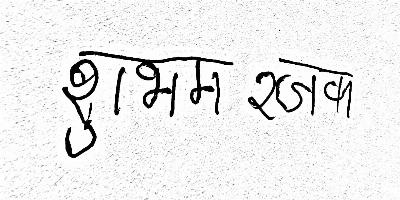 शुभम रजक